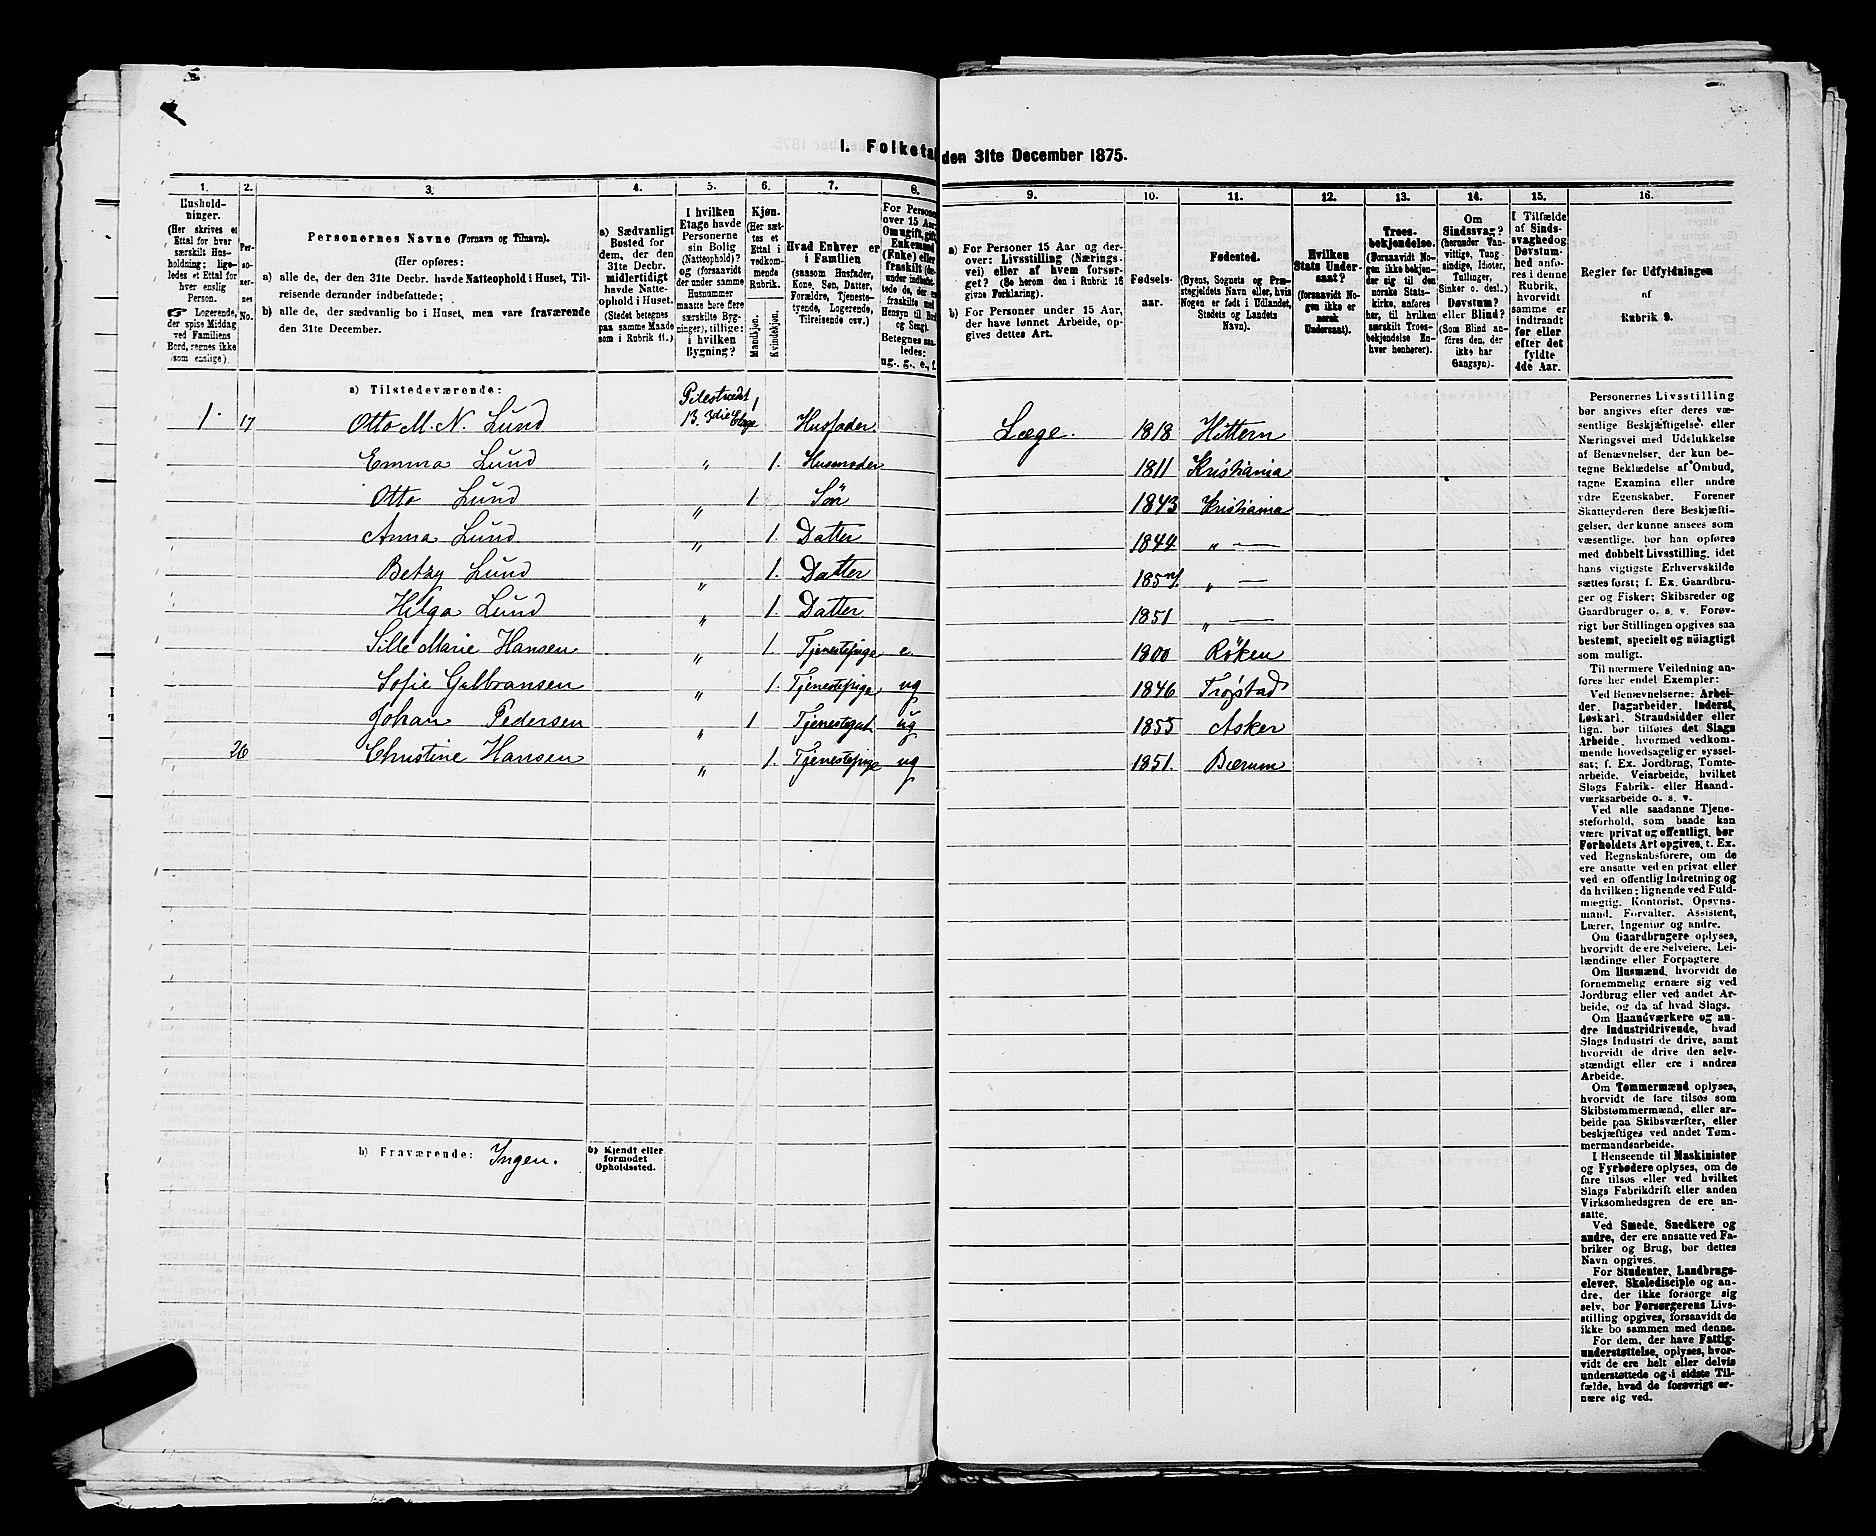 I. Folketal den 31te December 1875.
1. 2. 3. 4. 5. 6. 7. 8. 9. 10. 11. 12. 13. 14. 15. 16.
Hushold-
ninger.
(Her skrives et
Ettal for hver
særskilt Hus-
holdning; lige-
ledes et Ettal for
hver enslig
Person.
☞ Logerende,
der spise Middag
ved Familiens
Bord, regnes ikke
som enslige).
Per-
so-
ner-
nes
No.
Personernes Navne (Fornavn og Tilnavn).
(Her opføres:
a) alle de, der den 31te Decbr. havde Natteophold i Huset, Til-
reisende derunder indbefattede;
b) alle de, der sædvanlig bo i Huset, men vare fraværende
den 31te December.
a) Sædvanligt
Bosted for
dem, der den
31te Decbr.
midlertidigt
havde Natte-
ophold i Huset.
(Stedet betegnes
paa samme Maade
som i Rubrik 11.)
I hvilken
Etage havde
Personerne
sin Bolig
(Natteophold)?
og (forsaavidt
der under samme
Husnummer
maatte høre flere
særskilte Byg-
ninger), tillige:
i hvilken
Bygning?
Kjøn.
(Her sæt-
tes et
Ettal i
vedkom-
mende
Rubrik.
Mandkjøn.
Kvindekjøn.
Hvad Enhver er
i Familien
(saasom Husfader,
Kone, Søn, Datter,
Forældre, Tjeneste-
tydende, Logerende,
Tilreisende osv.)
For Personer
over 15 Aar:
Omugift, gift,
Enkemand
(Enke) eller
fraskilt
Betegnes saa-
ledes:
ug., g., e., f.
a) For Personer 15 Aar og der-
over: Livsstilling (Nærings-
vei) eller af hvem forsør-
get? (Se herom den i Rubrik 16
givne Forklaring).
b) For Personer under 15 Aar,
der have lønnet Arbeide, op-
gives dettes Art.
Fødsels-
aar.
Fødested.
(Byens, Sognets og Præ-
stegjeldets Navn eller, hvis
Nogen er født i Udlandet,
Stedets og Landets
Navn).
Hvilken
Stats Under-
saat?
(forsaavidt No-
gen ikke er
norsk
Undersaat).
Troes-
bekjendelse.
(Forsaavidt No-
gen ikke bekjen-
der sig til den
norske Stats-
kirke, anføres
her, til hvilken
særskilt Troes-
bekjendelse En-
hver henhører).
Om
Sindssvag?
(herunder Van-
vittige, Tung-
sindige, Idioter,
Tullinger,
Sinker o. desl.)
Døvstum?
eller Blind?
(Som Blind an-
føres den, der
ikke har
Gangsyn).
I Tilfælde
af Sinds-
svaghed og
Døvstum-
hed anfø-
res i denne
Rubrik,
hvorvidt
samme er
indtraadt
før eller
efter det
fyldte
4de Aar.
Regler for Udfyldningen
af
Rubrik 9.
a) Tilstedeværende:
1. 17 Otto M. N. Lund Pilestrædet 13. 3die Etage 1 Husfader Læge. 1818 Hittern
Emma Lund " 1. Husmoder 1811 Kristiania
Otto Lund " 1. Sön 1843 Kristiania
Anna Lund " 1. Datter 1844 " —
Betzy Lund " 1. Datter " —
Helga Lund " 1. Datter 1851 " —
Sille Marie Hansen " 1. Tjenestepige e. 1800 Röken
Sofie Gulbransen " 1. Tjenestepige ug 1846 Trøgstad
Johan Pedersen " 1 Tjenestegut ug 1855 Asker
26 Christine Hansen " 1. Tjenestepige ug 1851. Bærum
b) Fraværende: Ingen.
b) Kjendt eller
formodet
Opholdssted.
Personernes Livsstilling
bør angives efter deres væ-
sentlige Beskjæftigelse eller
Næringsvei med Udelukkelse
af Benævnelser, der kun be-
tegne Beklædelse af Ombud,
tagne Examina eller andre
ydre Egenskaber. Forener
Skatteyderen flere Beskjæfti-
gelser, der kunne ansees som
væsentlige, bør han opføres
med dobbelt Livsstilling, idet
hans vigtigste Erhvervskilde
sættes først; f. Ex. Gaardbru-
ger og Fisker; Skibsreder og
Gaardbruger o. s. v. Forøv-
rigt bør Stillingen opgives saa
bestemt, specielt og nöiagtigt
som muligt.
Til nærmere Veiledning an-
føres her endel Exempler:
Ved Benævnelserne: Arbei-
der, Dagarbeider, Inderst,
Løskarl, Strandsidder eller
lign. bør tilføies det Slags
Arbeide, hvormed vedkom-
mende hovedsagelig er syssel-
sat; f. Ex. Jordbrug, Tomte-
arbeide, Veiarbeide, hvilket
Slags Fabrik- eller Haand-
værksarbeide o. s. v.
Ved alle saadanne Tjene-
steforhold, som baade kan
være privat og offentligt, bør
Forholdets Art opgives, t. Ex.
ved Regnskabsførere, om de
ere ansatte ved en privat eller
ved en offentlig Indretning og
da hvilken; lignende ved Fuld-
mægtig, Kontorist, Opsyns-
mand, Forvalter, Assistent,
Lærer, Ingeniør og andre.
Om Gaardbrugere oplyses,
hvorvidt de ere Selveiere, Lei-
lændinge eller Forpagtere.
Om Husmænd, hvorvidt de
fornemmelig ernære sig ved
Jordbrug eller ved andet Ar-
beide, og da af hvad Slags.
Om Haandværkere og an-
dre Industridrivende, hvad
Slags Industri de drive, samt
hvorvidt de drive den selv-
stændigt eller ere i andres
Arbeide.
Om Tømmermænd oplyses,
hvorvidt de fare tilsøs som
Skibstømmermænd, eller ar-
beide paa Skibsværfter, eller
beskjæftiges ved andet Tøm-
mermandsarbeide.
I Henseende til Maskinister
og Fyrbødere oplyses, om de
fare tilsøs eller ved hvilket
Slags Fabrikdrift eller anden
Virksomhedsgren de ere an-
satte.
Ved Smede, Snedkere og
andre, der ere ansatte ved Fa-
briker og Brug, bør dettes
Navn opgives.
For Studenter, Landbrugs-
elever, Skoledisciple og an-
dre, der ikke forsørge sig
selv, bør Forsørgerens Livs-
stilling opgives, forsaavidt de
ikke bo sammen med denne.
For dem, der have Fattig-
understøttelse, oplyses, hvor-
vidt de ere helt eller delvis
understøttede og i sidste Til-
fælde, hvad de forøvrigt er-
nære sig ved.